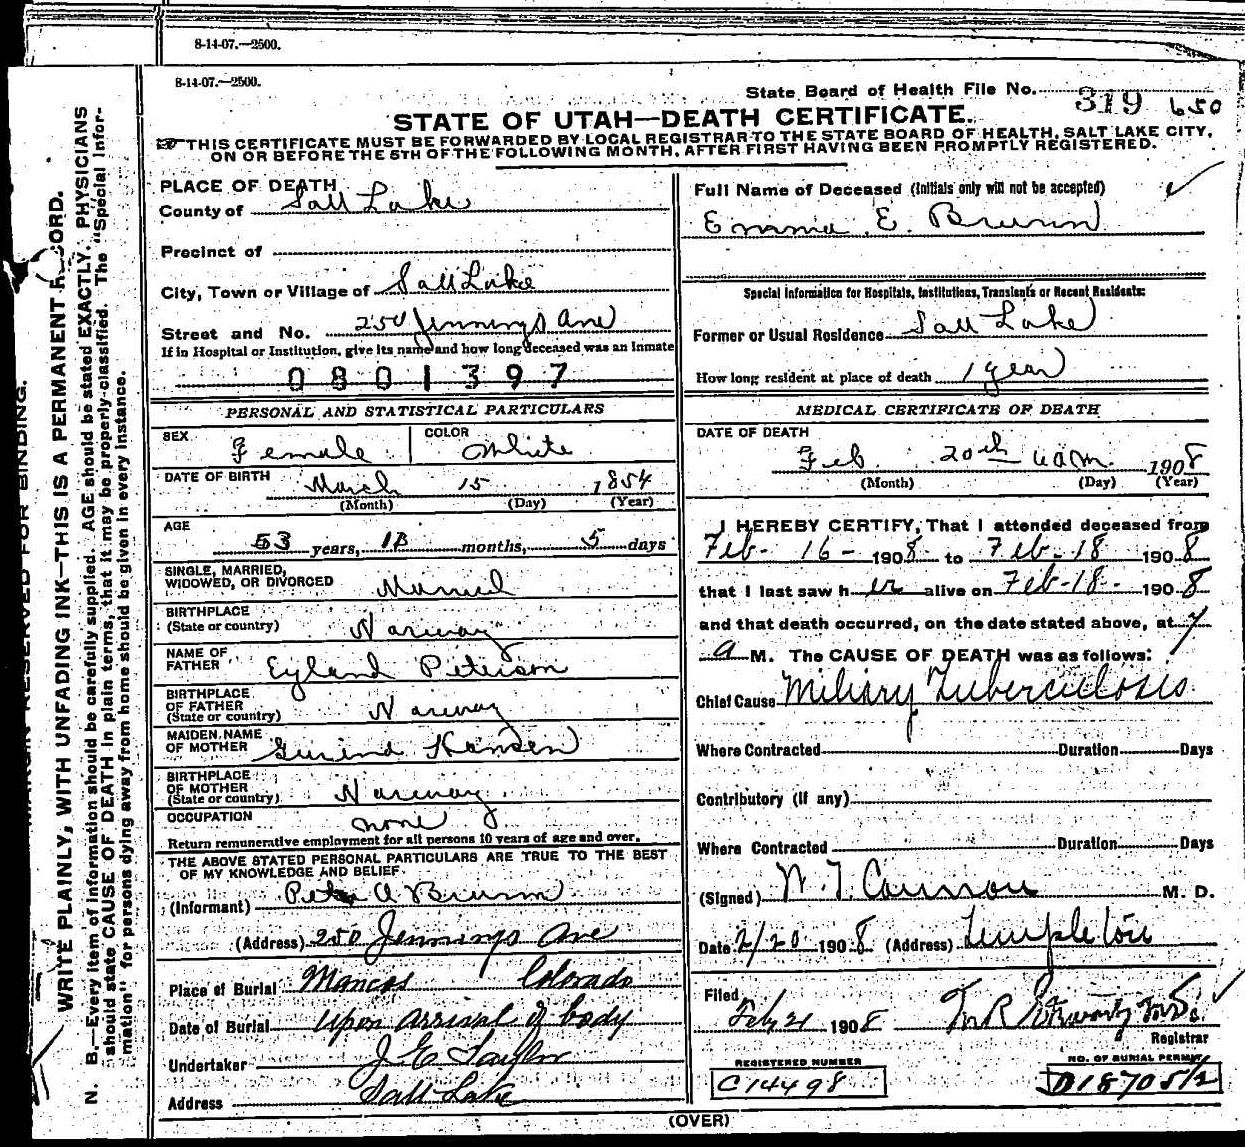 8-14-07.—2500.
8-14-07.—2500.
State Board of Health File No. 319 650
STATE OF UTAH—DEATH CERTIFICATE.
THIS CERTIFICATE MUST BE FORWARDED BY LOCAL REGISTRAR TO THE STATE BOARD OF HEALTH, SALT LAKE CITY,
ON OR BEFORE THE 5TH OF THE FOLLOWING MONTH, AFTER FIRST HAVING BEEN PROMPTLY REGISTERED.
PLACE OF DEATH
County of Salt Lake
Precinct of
City, Town or Village of Salt Lake
Street and No. 250 Jennings Ave
If in Hospital or Institution, give its name and how long deceased was an inmate
0801397
PERSONAL AND STATISTICAL PARTICULARS
SEX Female COLOR White
DATE OF BIRTH March 15 1854
(Month) (Day) (Year)
AGE
53 years, months, 5 days
SINGLE, MARRIED,
WIDOWED, OR DIVORCED Married
BIRTHPLACE
(State or country) Norway
NAME OF
FATHER Eyland Peterson
BIRTHPLACE
OF FATHER
(State or country) Norway
MAIDEN NAME
OF MOTHER Hansen
BIRTHPLACE
OF MOTHER
(State or country) Norway
OCCUPATION none
Return remunerative employment for all persons 10 years of age and over.
THE ABOVE STATED PERSONAL PARTICULARS ARE TRUE TO THE BEST
OF MY KNOWLEDGE AND BELIEF
(Informant) Peter A Brunn
(Address) 250 Jennings Ave
Place of Burial Mancos Colorado
Date of Burial Upon arrival of body
Undertaker J E Taylor
Address Salt Lake
Full Name of Deceased (Initials only will not be accepted)
Emma E. Brunn
Special Information for Hospitals, Institutions, Transients or Recent Residents:
Former or Usual Residence Salt Lake
How long resident at place of death 1 year
MEDICAL CERTIFICATE OF DEATH
DATE OF DEATH
Feb 20th 1908
(Month) (Day) (Year)
I HEREBY CERTIFY, That I attended deceased from
Feb- 16- 1908 to Feb-18 1908
that I last saw her alive on Feb-18- 1908
and that death occurred, on the date stated above, at 7
a M. The CAUSE OF DEATH was as follows:
Chief Cause Miliary Tuberculosis
Where Contracted Duration Days
Contributory (if any)
Where Contracted Duration Days
(Signed) M. D.
Date 2/20 1908 (Address) Templeton
Filed
Feb 21 1908
Registrar
REGISTERED NUMBER
C14498
NO. OF BURIAL PERMIT
D18705/2
(OVER)
MARGIN RESERVED FOR BINDING.
WRITE PLAINLY, WITH UNFADING INK—THIS IS A PERMANENT RECORD.
N. B.—Every item of information should be carefully supplied. AGE should be stated EXACTLY. PHYSICIANS
should state CAUSE OF DEATH in plain terms, that it may be properly classified. The "Special Infor-
mation" for persons dying away from home should be given in every instance.